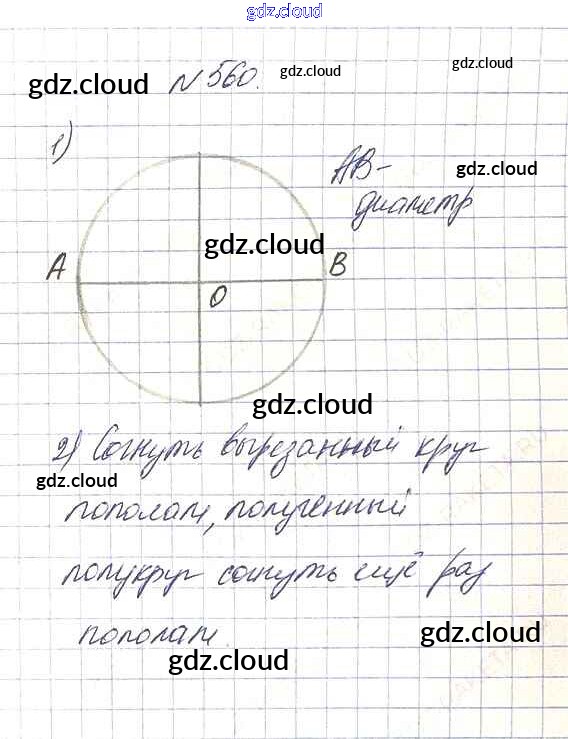 gdz.cloud
gdz.cloud № 560. gdz.cloud gdz.cloud
1)
AB- gdz.cloud
диаметр
gdz.cloud
A B
O
gdz.cloud
2) Согнуть вырезанный круг
gdz.cloud
пополам, полученный
полукруг согнуть ещё раз
пополам.
gdz.cloud gdz.cloud